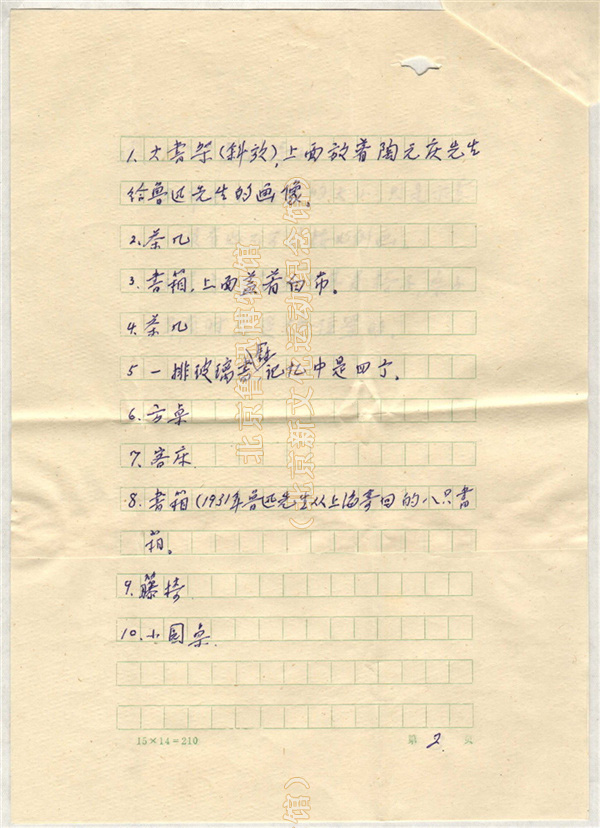 1.大书架(斜放),上面放着陶元庆先生
给鲁迅先生的画像。
2.茶几
3.书箱,上面盖着白布。
4.茶几
5 一排玻璃书橱 记忆中是四个。
6.方桌
7.客床
8.书箱(1931年鲁迅先生从上海寄回的八只书
箱。
9.藤椅
10.小圆桌
15×14=210
第 2 页
北京鲁迅博物馆
(北京新文化运动纪念馆)
馆)